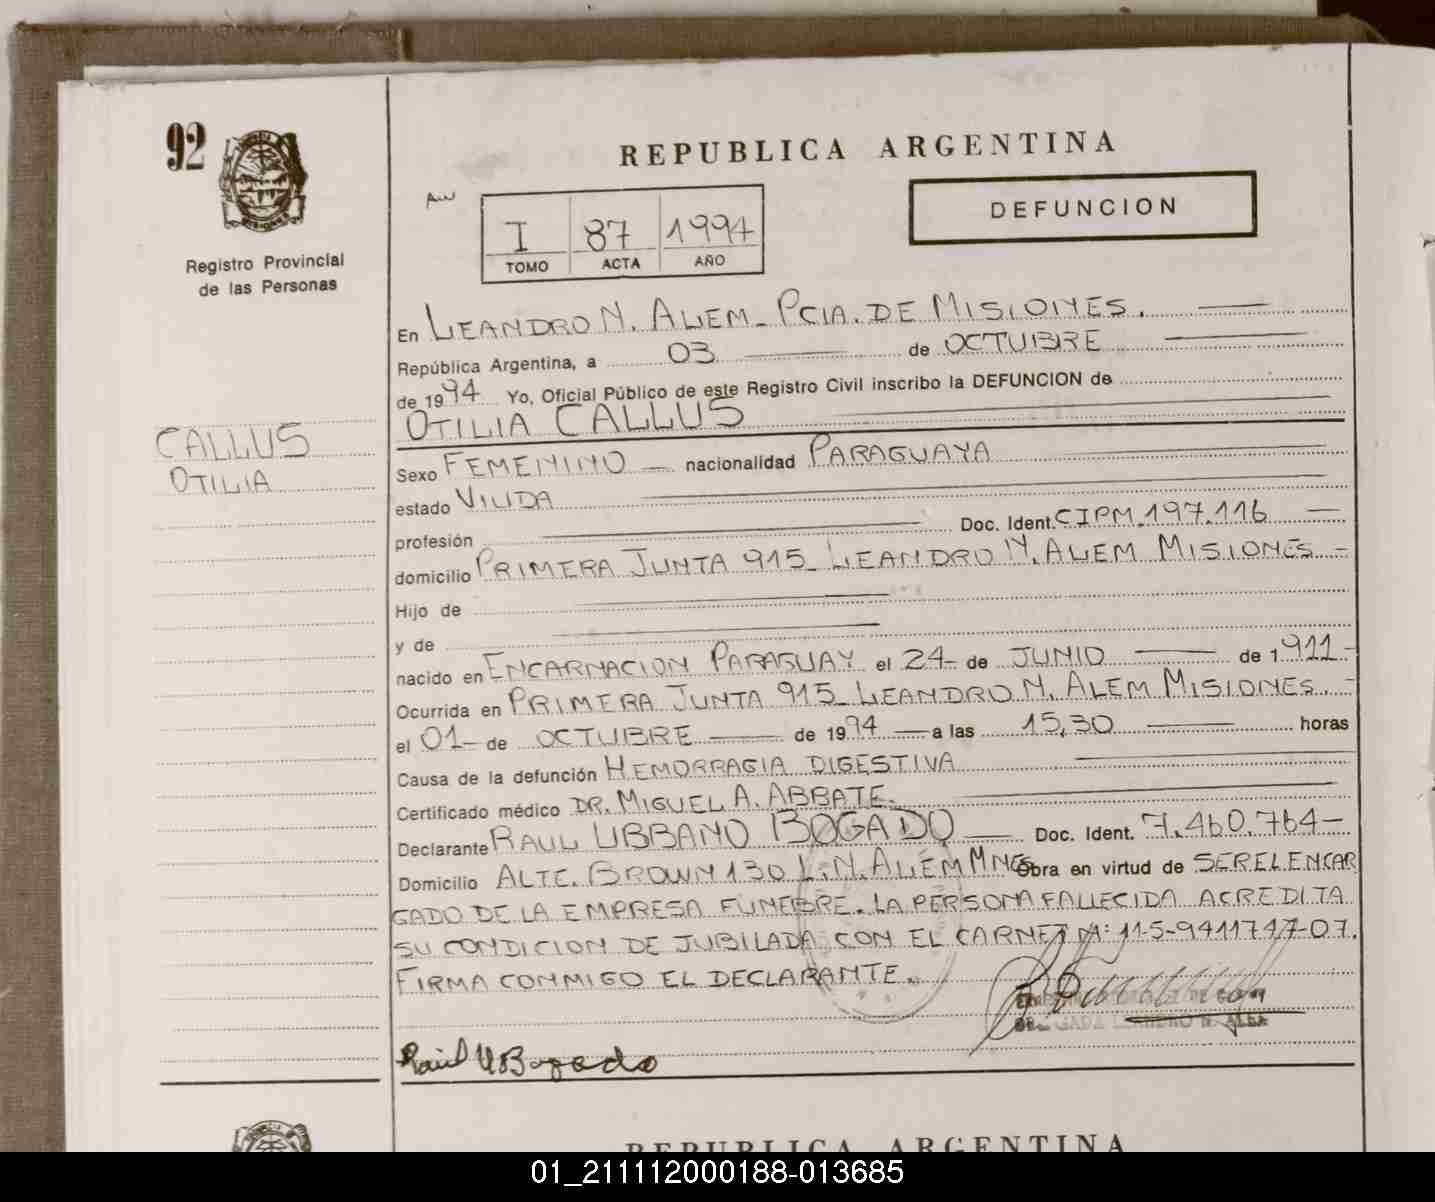 92
REPUBLICA ARGENTINA
DEFUNCION
I 87 1994
TOMO ACTA AÑO
Registro Provincial
de las Personas
En LEANDRO N. ALEM - PCIA. DE MISIONES.
República Argentina, a 03 de OCTUBRE
de 1994 Yo, Oficial Público de este Registro Civil inscribo la DEFUNCION de
OTILIA CALLUS
CALLUS
OTILIA
Sexo FEMENINO nacionalidad PARAGUAYA
estado VIUDA
profesión Doc. Ident. CIPM.197.116
domicilio PRIMERA JUNTA 915 - LEANDRO N. ALEM MISIONES -
Hijo de
y de
nacido en ENCARNACION PARAGUAY el 24 - de JUNIO de 1911 -
Ocurrida en PRIMERA JUNTA 915 - LEANDRO N. ALEM MISIONES. -
el 01 - de OCTUBRE de 1994 a las 15,30 horas
Causa de la defunción HEMORRAGIA DIGESTIVA
Certificado médico DR. MIGUEL A. ABBATE.
Declarante RAUL URBANO BOGADO Doc. Ident. 7.460.764 -
Domicilio ALTE. BROWN 130 L. N. ALEM MNES Obra en virtud de SER EL ENCAR
GADO DE LA EMPRESA FUNEBRE. LA PERSONA FALLECIDA ACREDITA
SU CONDICION DE JUBILADA CON EL CARNET N: 11-5-9411747-07.
FIRMA CONMIGO EL DECLARANTE.
Raúl U Bogado
REPUBLICA ARGENTINA
01_211112000188-013685